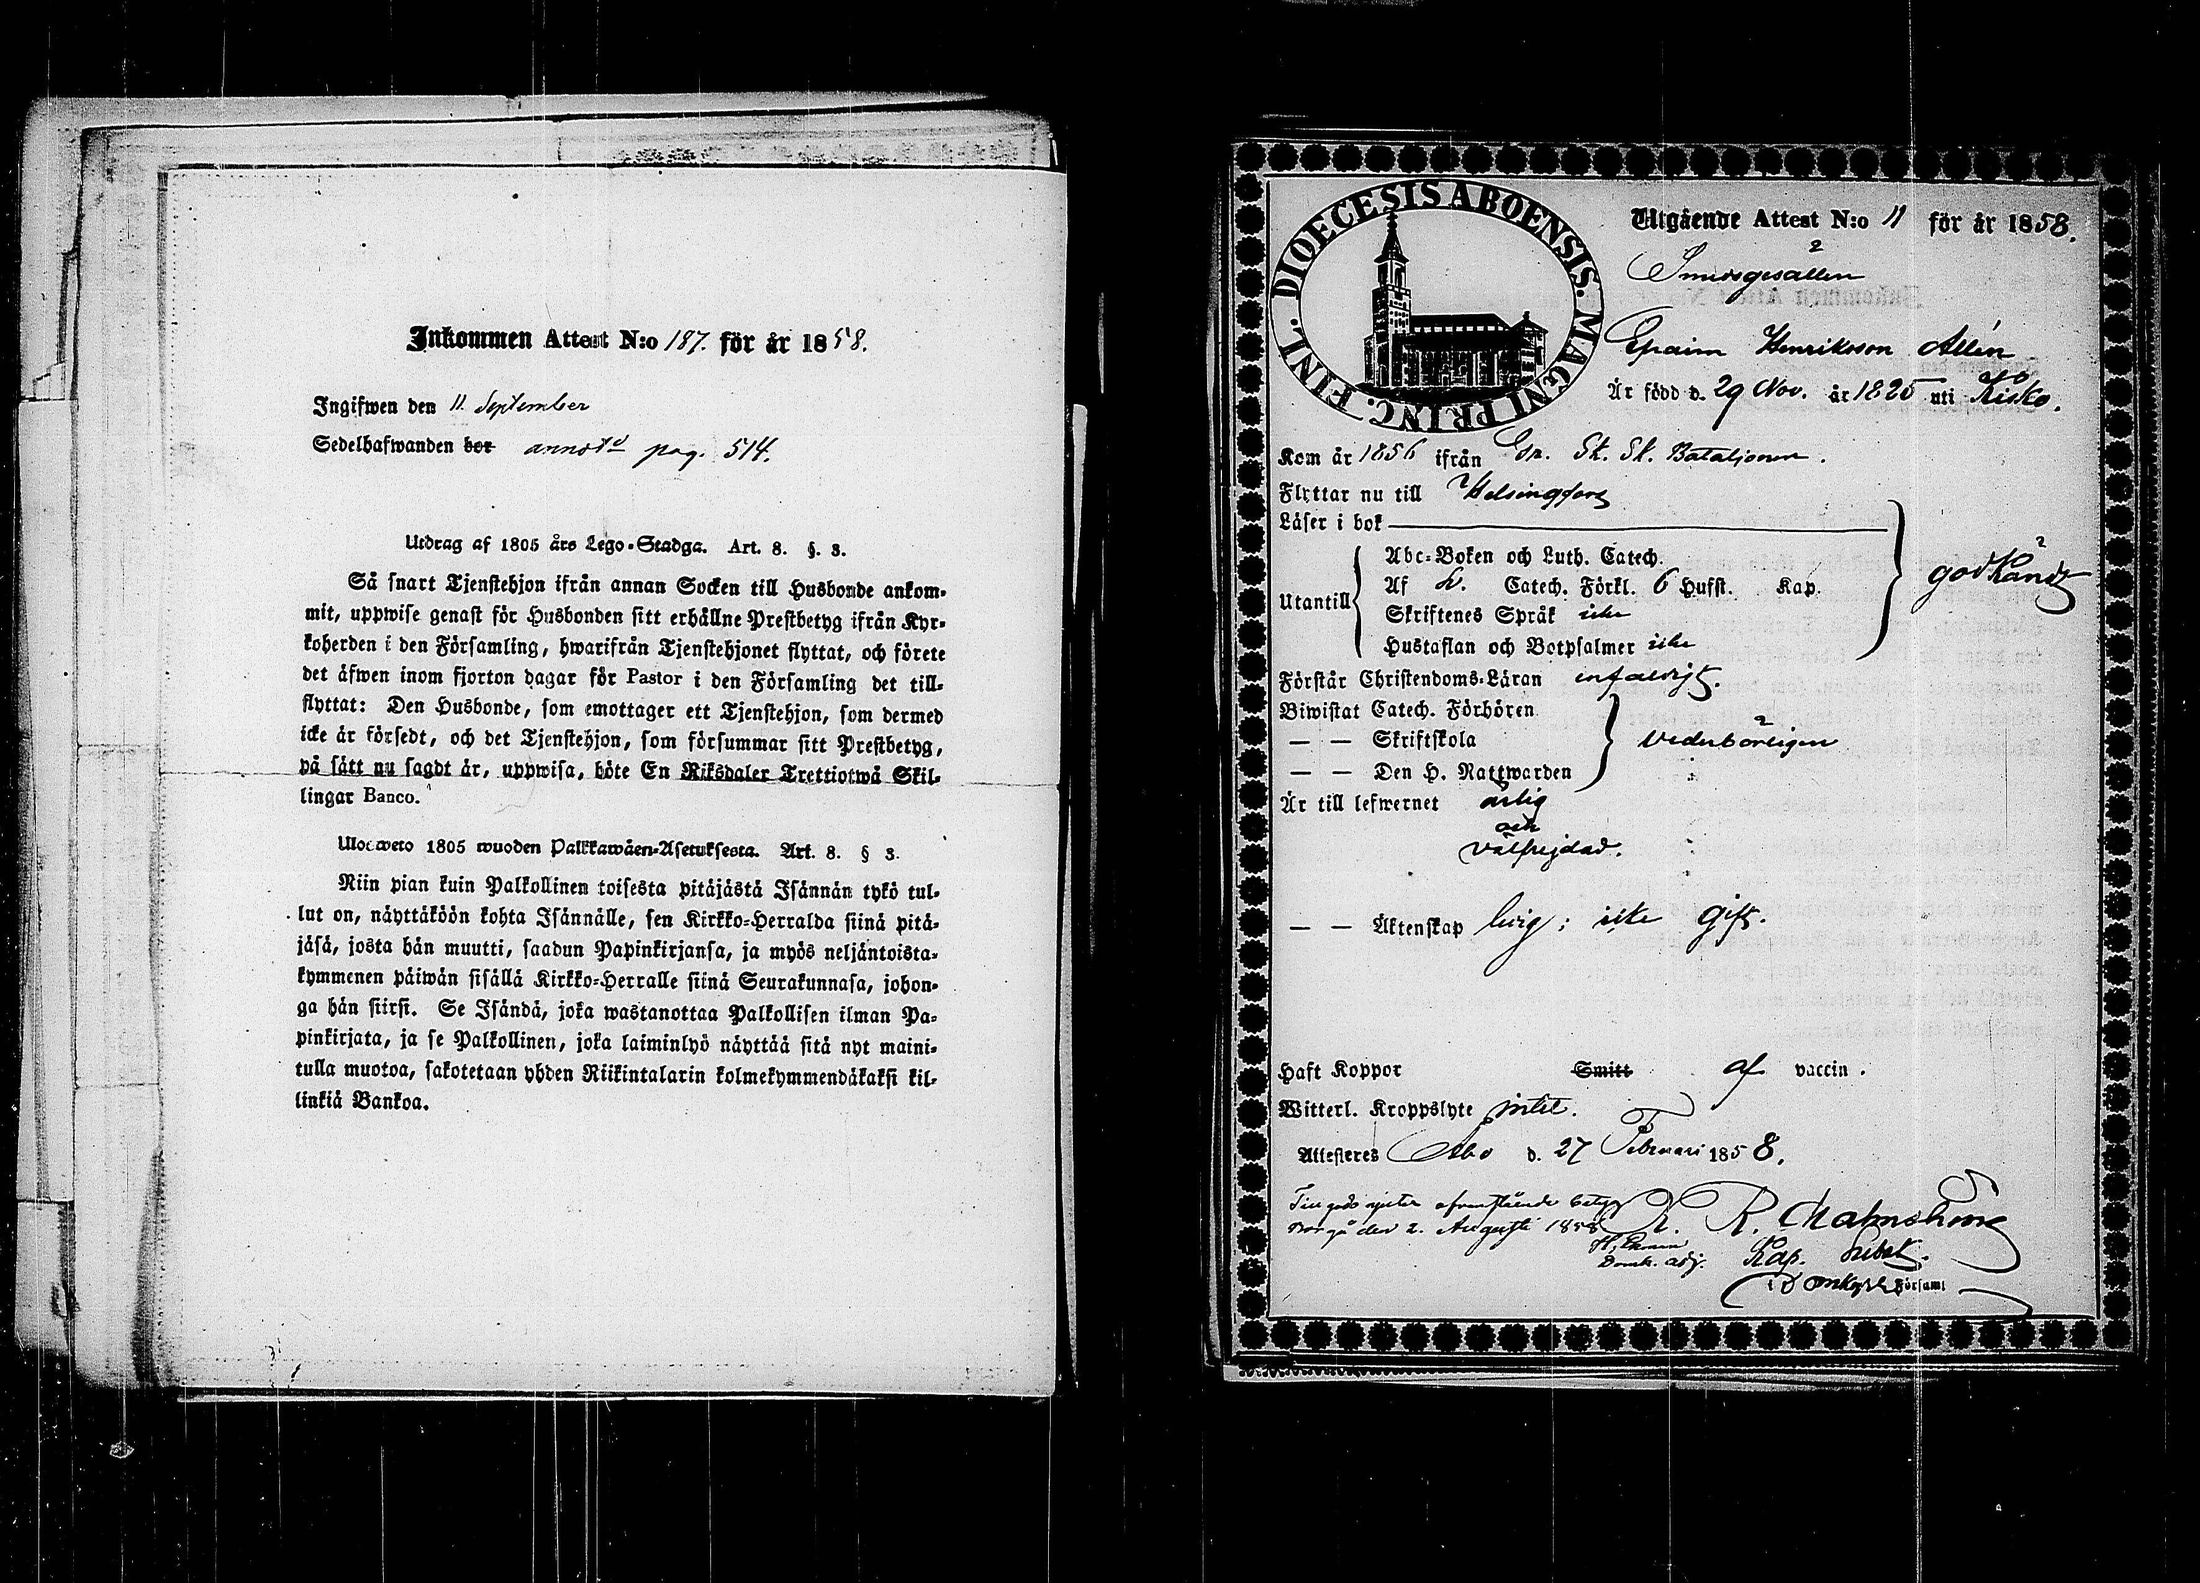 Inkommen Attest N:o 187. för år 1858.
Ingifwen den 11 September
Sedelhafwanden bor pag. 514.
Utdrag af 1805 års Lego-Stadga. Art. 8. §. 3.
Så snart Tjenstehjon ifrån annan Socken till Husbonde ankom-
mit, uppwise genast för Husbonden sitt erhållne Prestbetyg ifrån Kyr-
koherden i den Församling, hwarifrån Tjenstehjonet flyttat, och förete
det äfwen inom fjorton dagar för Pastor i den Församling det till-
flyttat: Den Husbonde, som emottager ett Tjenstehjon, som dermed
icke är försedt, och det Tjenstehjon, som försummar sitt Prestbetyg,
på sätt nu sagdt är, uppwisa, böte En Riksdaler Trettiotwå Skil-
lingar Banco.
Ulosweto 1805 wuoden Palkkawäen-Asetuksesta. Art. 8. § 3.
Niin pian kuin Palkollinen toisesta pitäjästä Isännän tykö tul-
lut on, näyttäköön kohta Isännälle, sen Kirkko-Herralda siinä pitä-
jäsä, josta hän muutti, saadun Papinkirjansa, ja myös neljäntoista-
kymmenen päiwän sisällä Kirkko-Herralle siinä Seurakunnasa, johon-
ga hän siirsi. Se Isändä, joka wastanottaa Palkollisen ilman Pa-
pinkirjata, ja se Palkollinen, joka laiminlyö näyttää sitä nyt maini-
tulla muotoa, sakotetaan yhden Riikintalarin kolmekymmendäkaksi kil-
linkiä Bankoa.
DIOECESIS ABOENSIS. MAGNI PRINC. FINL.
Utgående Attest N:o 11 för år 1858.
Smedsgesällen
Epraim Henriksson Allén
Är född d. 29 Nov. år 1825 uti Kisko.
Kom år 1856 ifrån Gr. Sk. Sk. Bataljonen.
Flyttar nu till Helsingfors
Läser i bok
Utantill
Abc-Boken och Luth. Catech.
Af Catech. Förkl. 6 Hufst. Kap.
Skriftenes Språk icke
Hustaflan och Botpsalmer icke
godkändt
Förstår Christendoms-Läran enfaldigt.
Biwistat Catech. Förhören
— — Skriftskola
— — Den H. Nattwarden
vederbörligen
Är till lefwernet ärlig
och
välfrejdad.
— — Äktenskap ledig; icke gift.
Haft Koppor Smitt af vaccin.
Witterl. Kroppslyte intet.
Attesteres Åbo d. 27 Februari 1858.
Till gods njuter ofvanstående betyg
Borgå den 2. Augusti 1858
Domk. adj.
K. R. Malmström
Kap. Subst.
i Domkyrko Församl